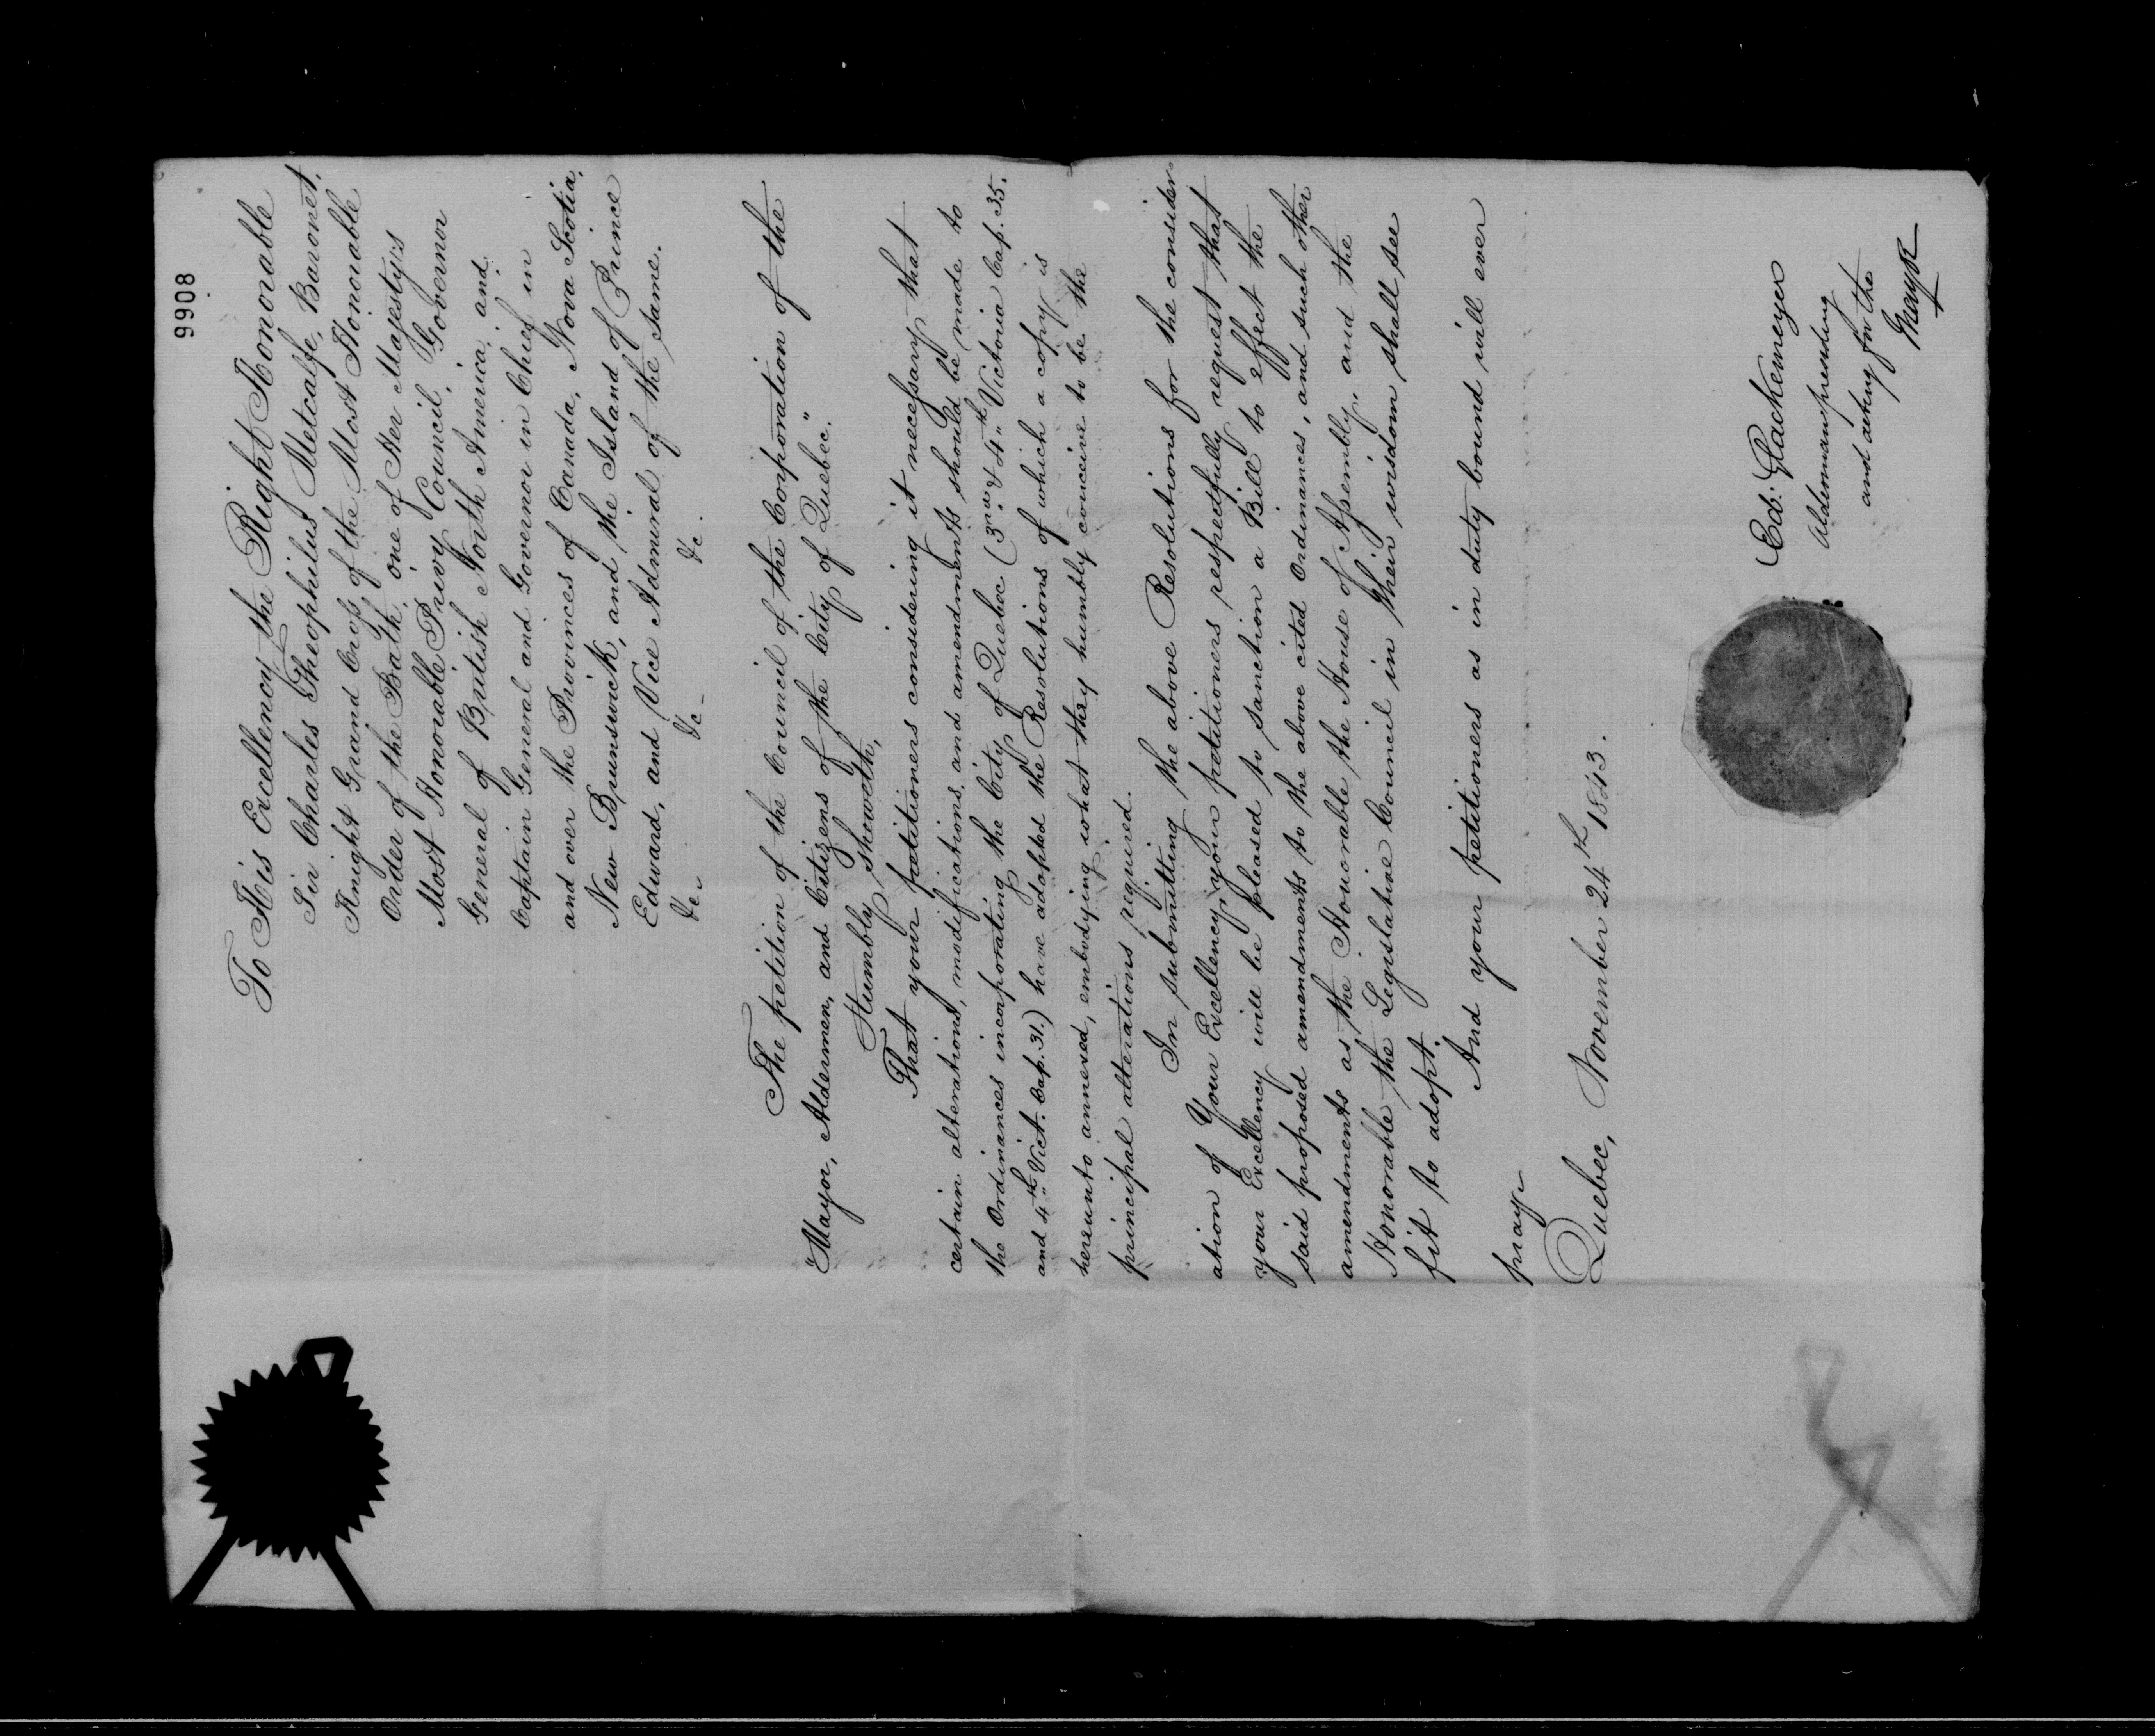 9908
To His Excellency the Right Honorable
Sir Charles Theophilus Metcalfe, Baronet,
Knight Grand Cross of the Most Honorable
Order of the Bath, one of Her Majesty's
Most Honorable Privy Council, Governor
General of British North America, and
Captain General and Governor in Chief in
and over the Provinces of Canada, Nova Scotia,
New Brunswick, and the Island of Prince
Edward, and Vice Admiral of the same.
&c &c - &c.
The petition of the Council of the Corporation of the
"Mayor, Aldermen, and Citizens of the City of Quebec."
Humbly sheweth,
That your petitioners considering it necessary that
certain alterations, modifications, and amendments should be made to
the Ordinances incorporating the City of Quebec (3rd. & 4th. Victoria Cap. 35.
and 4th. Vict. Cap. 31.) have adopted the Resolutions of which a copy is
hereunto annexed, embodying what they humbly conceive to be the
principal alterations required.
In submitting the above Resolutions for the consider-
ation of Your Excellency, your petitioners respectfully request that
your Excellency will be pleased to sanction a Bill to effect the
said proposed amendments to the above cited Ordinances, and such other
amendments as the Honorable the House of Assembly, and the
Honorable the Legislative Council in their wisdom shall see
fit to adopt.
And your petitioners as in duty bound will ever
pray
Quebec, November 24th 1843.
Ed: Glackemeyer
Alderman presiding
and acting for the
Mayor